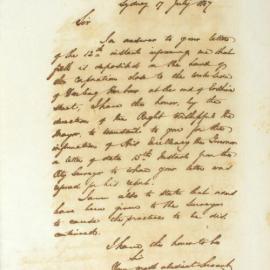 Sydney 17 July 1857
Sir
In answer to your letter
of the 12th instant informing me that
filth is deposited on the land of
the Corporation close to the waters
of Darling Harbour at the end of Bathurst
Street, I have the honor, by the
direction of the Right Worshipful the
Mayor, to transmit to you for the
information of His Excellency the Governor
a letter of date 15th Instant from the
City Surveyor to whom your letter was
referred for his report.
I am also to state that
have been given to the Surveyor
to cause the practices to be dis
continued.
I have the honor to be
Sir
Your most obedient Servant